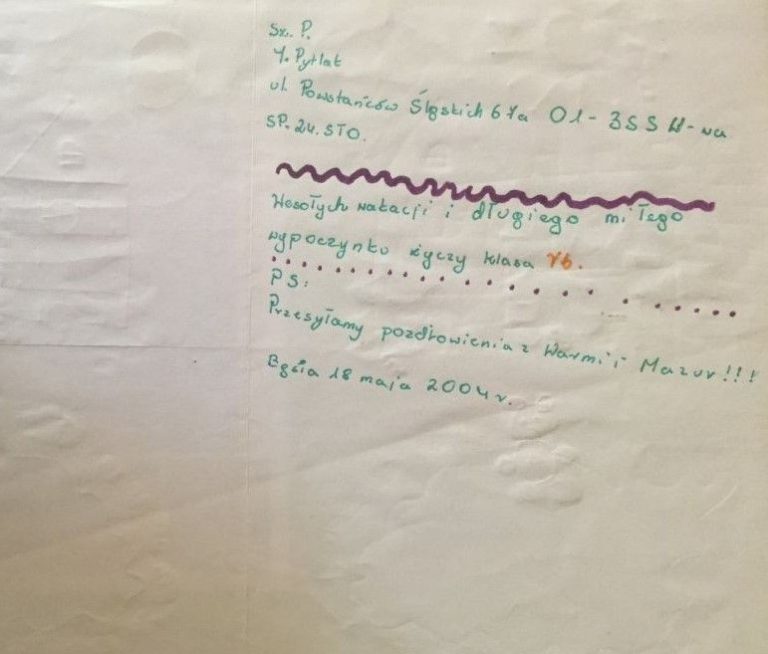 Sz. P.
Y. Pytlat
ul. Powstańców Śląskich 67a 01-355 W-wa
SP. 24. STO.
Wesołych wakacji i długiego miłego
wypoczynku życzy klasa Vb.
PS:
Przesyłamy pozdrowienia z Warmii i Mazur!!!
18 maja 2004r.